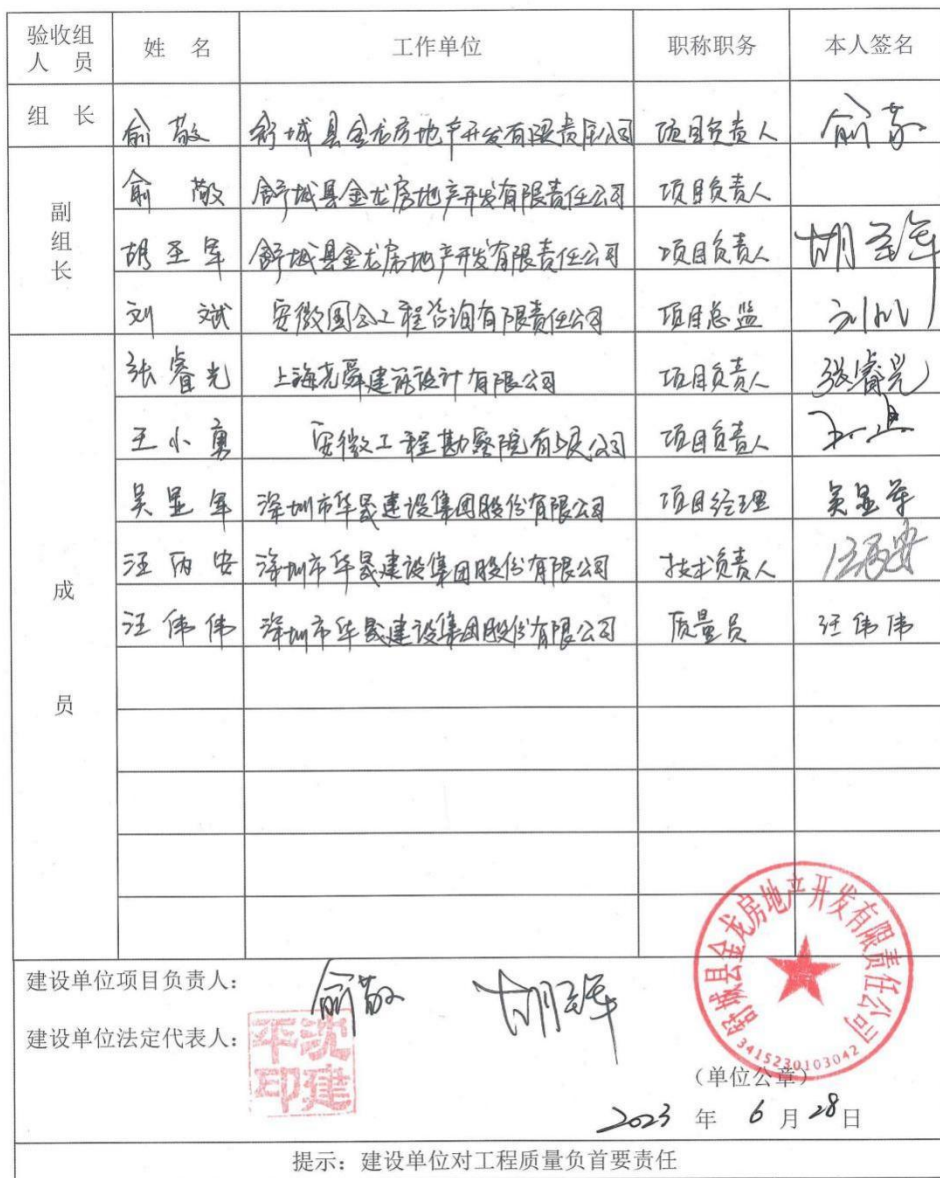 验收组人 员 姓 名 工作单位 职称职务 本人签名
组 长 俞敬 舒城县金龙房地产开发有限责任公司 项目负责人 俞敬
副组长 俞敬 舒城县金龙房地产开发有限责任公司 项目负责人
胡圣军 舒城县金龙房地产开发有限责任公司 项目负责人 胡圣军
刘斌 安徽国合工程咨询有限责任公司 项目总监 刘斌
成员 张睿光 上海尧舜建筑设计有限公司 项目负责人 张睿光
王小勇 安徽工程勘察院有限公司 项目负责人
吴显军 深圳市华晟建设集团股份有限公司 项目经理 吴显军
汪丙安 深圳市华晟建设集团股份有限公司 技术负责人 汪丙安
汪伟伟 深圳市华晟建设集团股份有限公司 质量员 汪伟伟
建设单位项目负责人: 俞敬 胡圣军
建设单位法定代表人: 沈建平印
舒城县金龙房地产开发有限责任公司
3415230103042
(单位公章)
2023 年 6 月 28 日
提示:建设单位对工程质量负首要责任